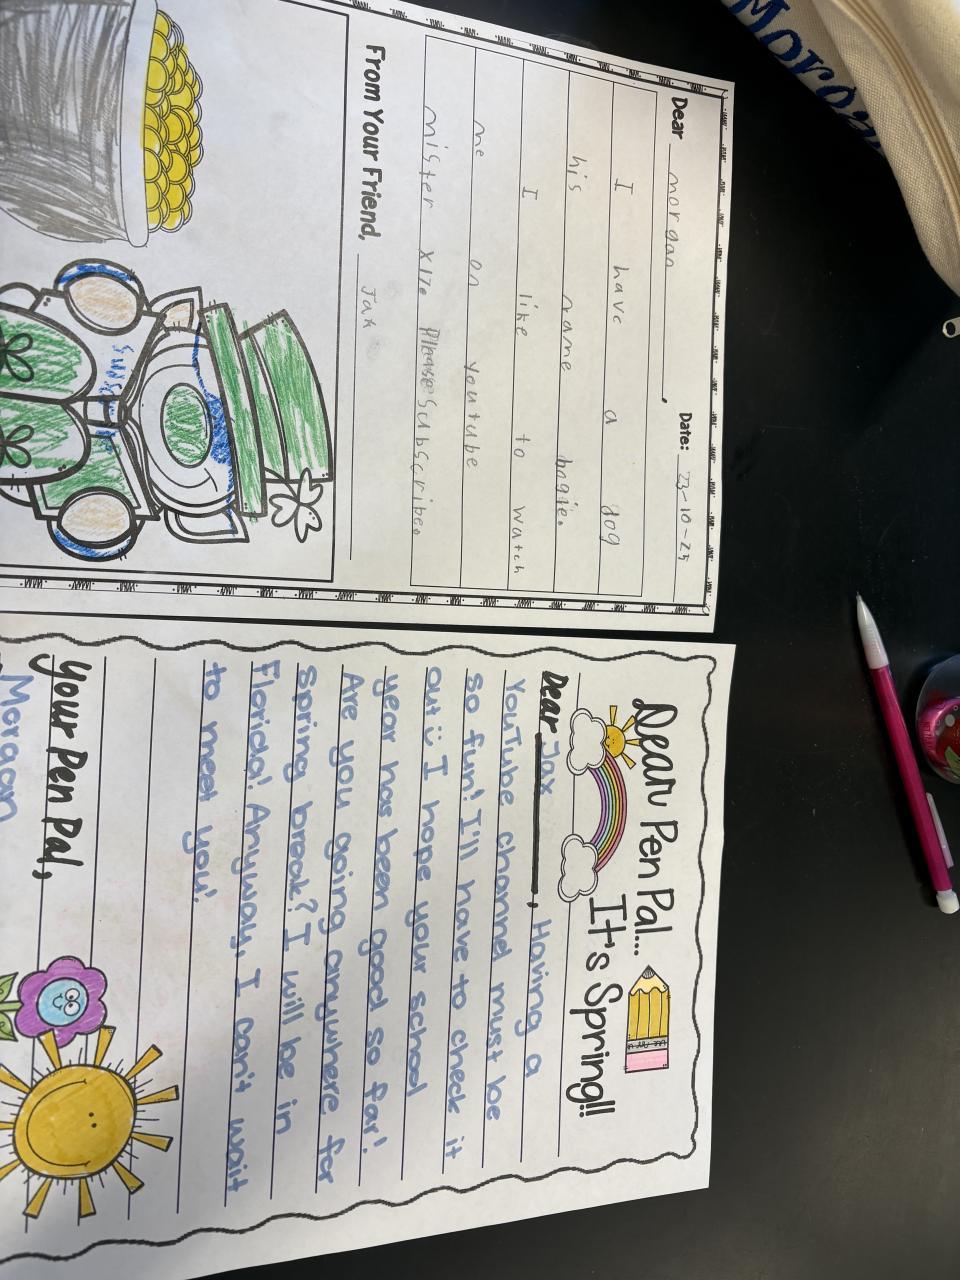 Morgan
Dear morgan, Date: 23-10-25
I have a dog
his name bogie.
I like to watch
me on youtube
mister x17e Please Subscribe.
From Your Friend, Jax
Dear Pen Pal...
It's Spring!!
Dear Jax, Having a
YouTube channel must be
so fun! I'll have to check it
out :) I hope your school
year has been good so far!
Are you going anywhere for
spring break? I will be in
Florida! Anyway, I can't wait
to meet you!
Your Pen Pal,
Morgan